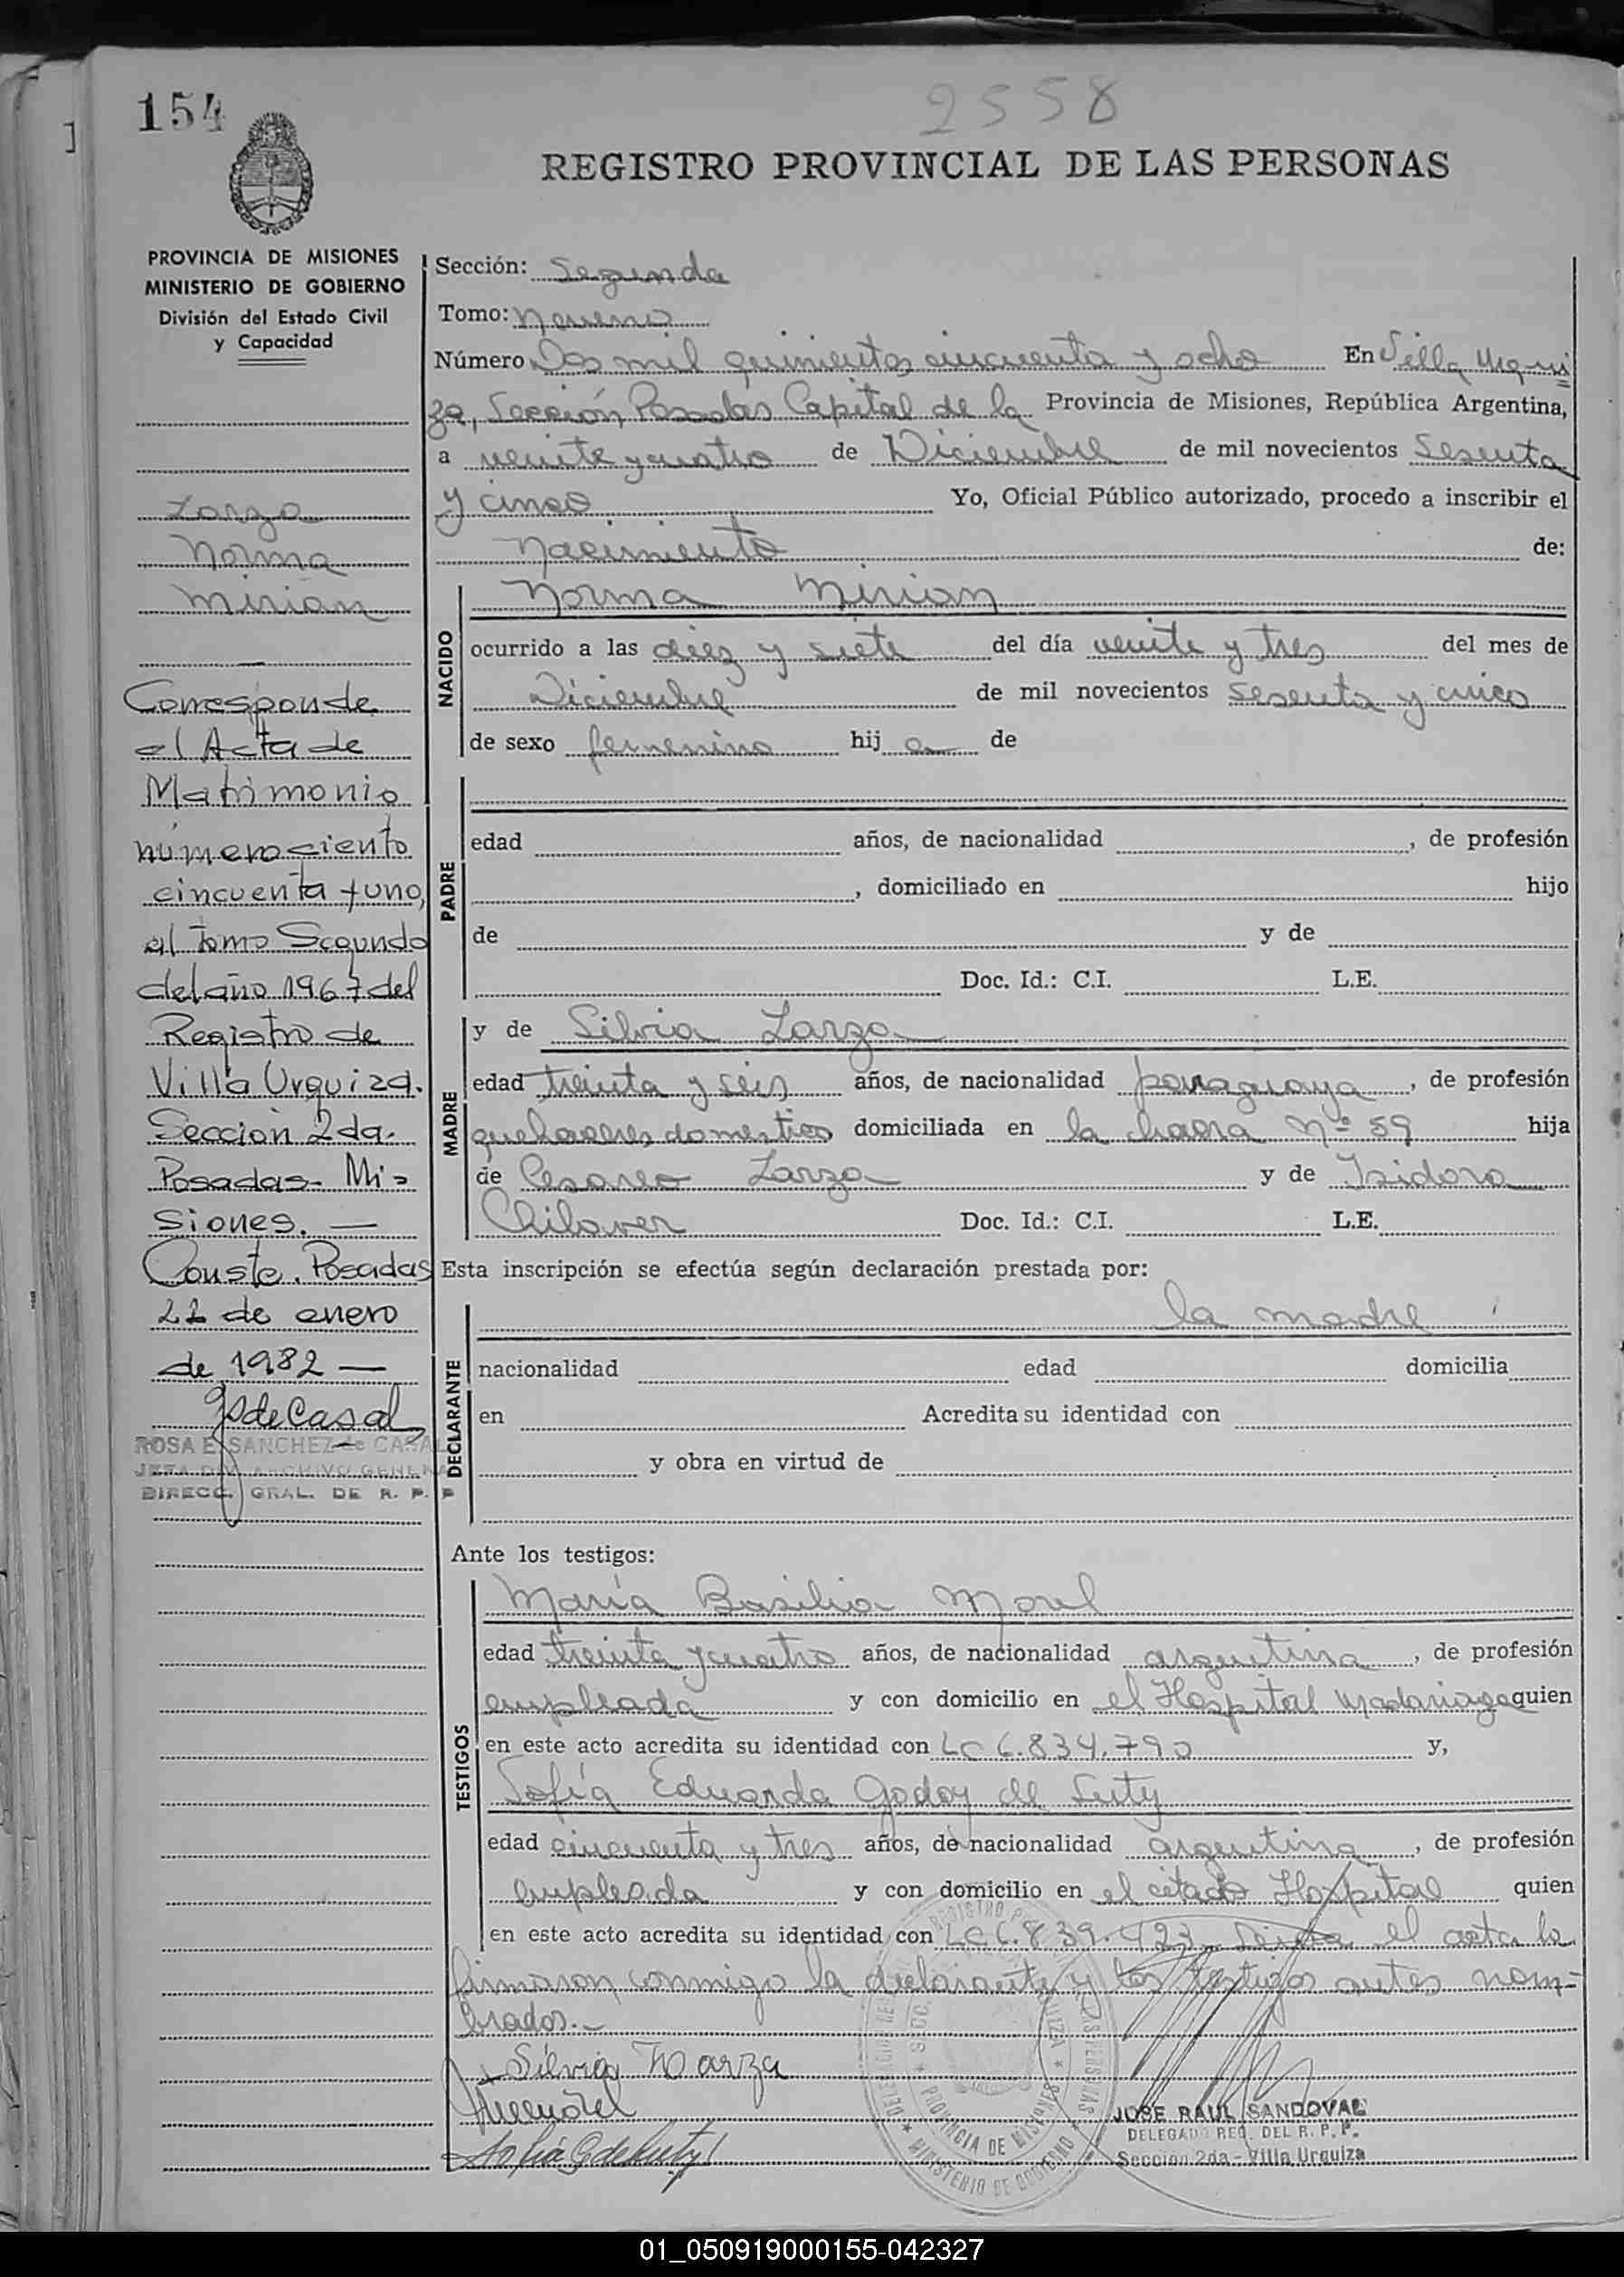 154
2558
REGISTRO PROVINCIAL DE LAS PERSONAS
PROVINCIA DE MISIONES
MINISTERIO DE GOBIERNO
División del Estado Civil
y Capacidad
Zarza
Norma
Mirian
Corresponde
el Acta de
Matrimonio
número ciento
cincuenta y uno,
al Tomo Segundo
del año 1967 del
Registro de
Villa Urquiza.
Sección 2da.
Posadas- Mi-
siones. —
Conste. Posadas
22 de enero
de 1982 —
ROSA E. SANCHEZ de CASAL
JEFA DIV. ARCHIVO GENERAL
DIRECC. GRAL. DE R. P. P
Sección: Segunda
Tomo: Noveno
Número Dos mil quinientos cincuenta y ocho En Villa Urqui
za, Sección Posadas Capital de la Provincia de Misiones, República Argentina,
a veinte y cuatro de Diciembre de mil novecientos Sesenta
y cinco Yo, Oficial Público autorizado, procedo a inscribir el
Nacimiento de:
NACIDO
Norma Mirian
ocurrido a las diez y siete del día veinte y tres del mes de
Diciembre de mil novecientos sesenta y cinco
de sexo femenino hij a de
PADRE
edad años, de nacionalidad , de profesión
, domiciliado en hijo
de y de
Doc. Id.: C.I. L.E.
MADRE
y de Silvia Zarza
edad treinta y seis años, de nacionalidad paraguaya , de profesión
quehaceres domesticos domiciliada en la chacra Nº 59 hija
de Cesareo Zarza y de Isidora
Chilaver Doc. Id.: C.I. L.E.
Esta inscripción se efectúa según declaración prestada por:
DECLARANTE
la madre
nacionalidad edad domicilia
en Acredita su identidad con
y obra en virtud de
Ante los testigos:
TESTIGOS
María Basilia Morel
edad treinta y cuatro años, de nacionalidad argentina , de profesión
empleada y con domicilio en el Hospital Madariaga quien
en este acto acredita su identidad con LC 6.834.790 y,
Sofía Eduarda Godoy de Suty
edad cincuenta y tres años, de nacionalidad argentina , de profesión
empleada y con domicilio en el citado Hospital quien
en este acto acredita su identidad con LC 6.839.423 Leida el acta la
firmaron conmigo la declarante y los testigos antes nom-
brados.-
Silvia Zarza
JOSE RAUL SANDOVAL
DELEGADO REG. DEL R. P. P.
Sección 2da - Villa Urquiza
PROVINCIA DE MISIONES
MINISTERIO DE GOBIERNO
01_050919000155-042327